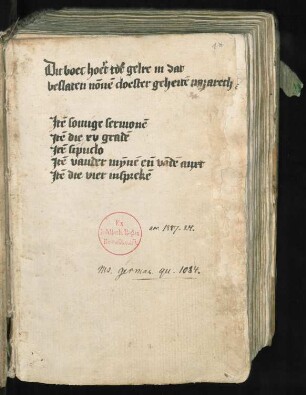 Dit boec hoert tot gelre in dat
besloten nōnē cloester geheitē nazareth
Itē somige sermonē
Itē die xv gradē
Itē
Itē vander mȳnē eñ vādē
Itē die vier inspreke
acc. 1887. 24.
Ms. german. qu. 1084.